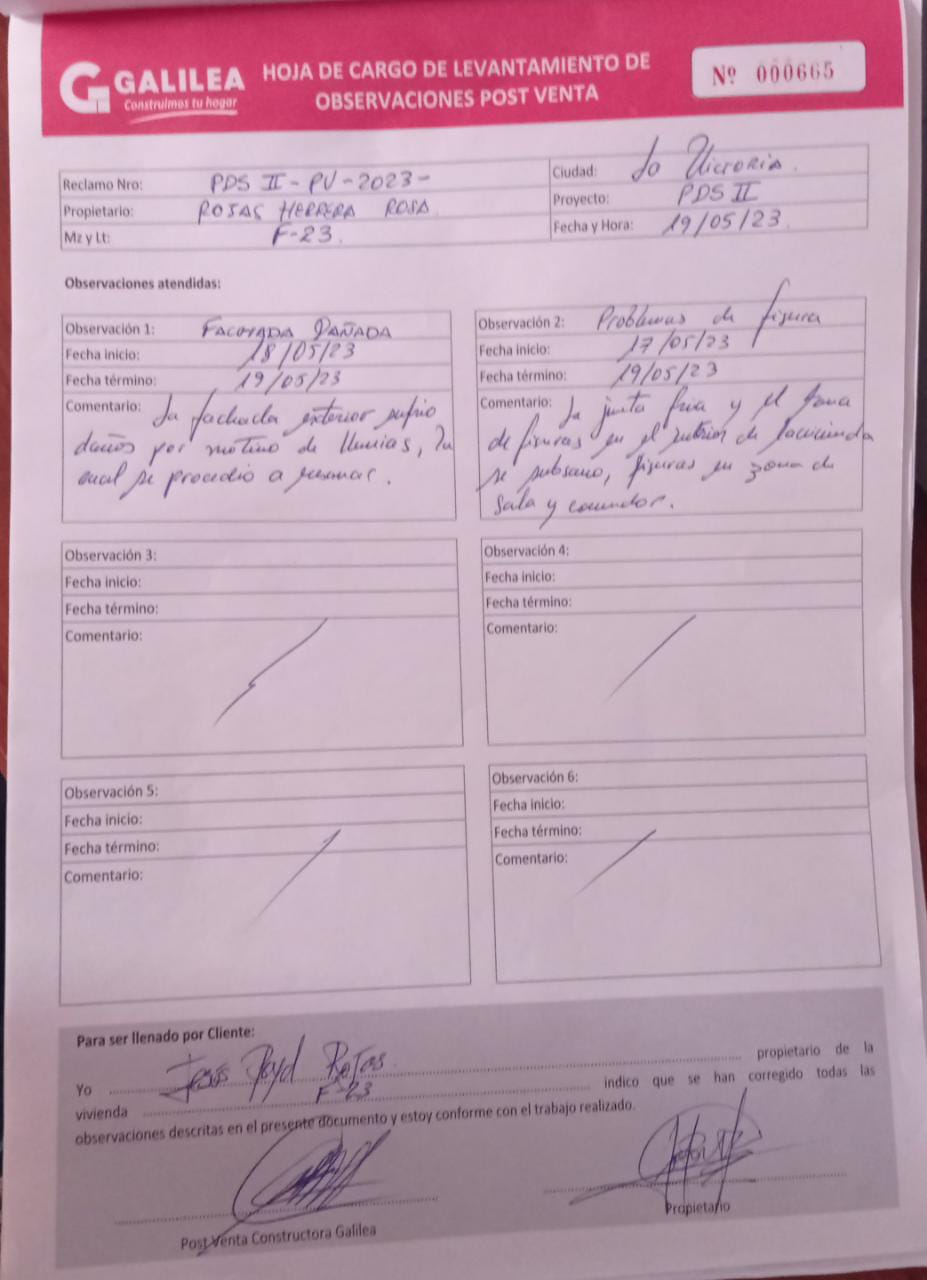 GALILEA
Construimos tu hogar
HOJA DE CARGO DE LEVANTAMIENTO DE
OBSERVACIONES POST VENTA
Nº 000665
Reclamo Nro: PDS II - PV - 2023 -
Propietario: ROJAS HERRERA ROSA
Mz y Lt: F-23.
Ciudad: La Victoria.
Proyecto: PDS II
Fecha y Hora: 19/05/23.
Observaciones atendidas:
Observación 1: FACHADA DAÑADA
Fecha inicio: 18/05/23
Fecha término: 19/05/23
Comentario: La fachada exterior sufrio
daños por motivo de lluvias, la
cual se procedio a resanar.
Observación 2: Problemas de fisura
Fecha inicio: 17/05/23
Fecha término: 19/05/23
Comentario: La junta fria y el
de fisuras en el de
se subsano, fisuras en zona de
Sala y comedor.
Observación 3:
Fecha inicio:
Fecha término:
Comentario:
Observación 4:
Fecha inicio:
Fecha término:
Comentario:
Observación 5:
Fecha inicio:
Fecha término:
Comentario:
Observación 6:
Fecha inicio:
Fecha término:
Comentario:
Para ser llenado por Cliente:
Yo Rojas propietario de la
vivienda F-23 indico que se han corregido todas las
observaciones descritas en el presente documento y estoy conforme con el trabajo realizado.
Post Venta Constructora Galilea
Propietario